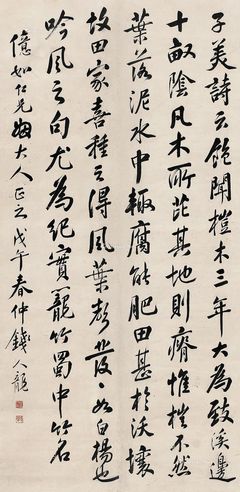 子美詩云飽聞榿木三年大為致溪邊
十畝陰凡木所芘其地則瘠惟榿不然
葉落泥水中輙腐能肥田甚於沃壤
故田家喜種之得風葉聲發〻如白楊也
吟風之句尤為紀實籠竹蜀中竹名
億如仁兄姻大人正之戊午春仲錢人龍